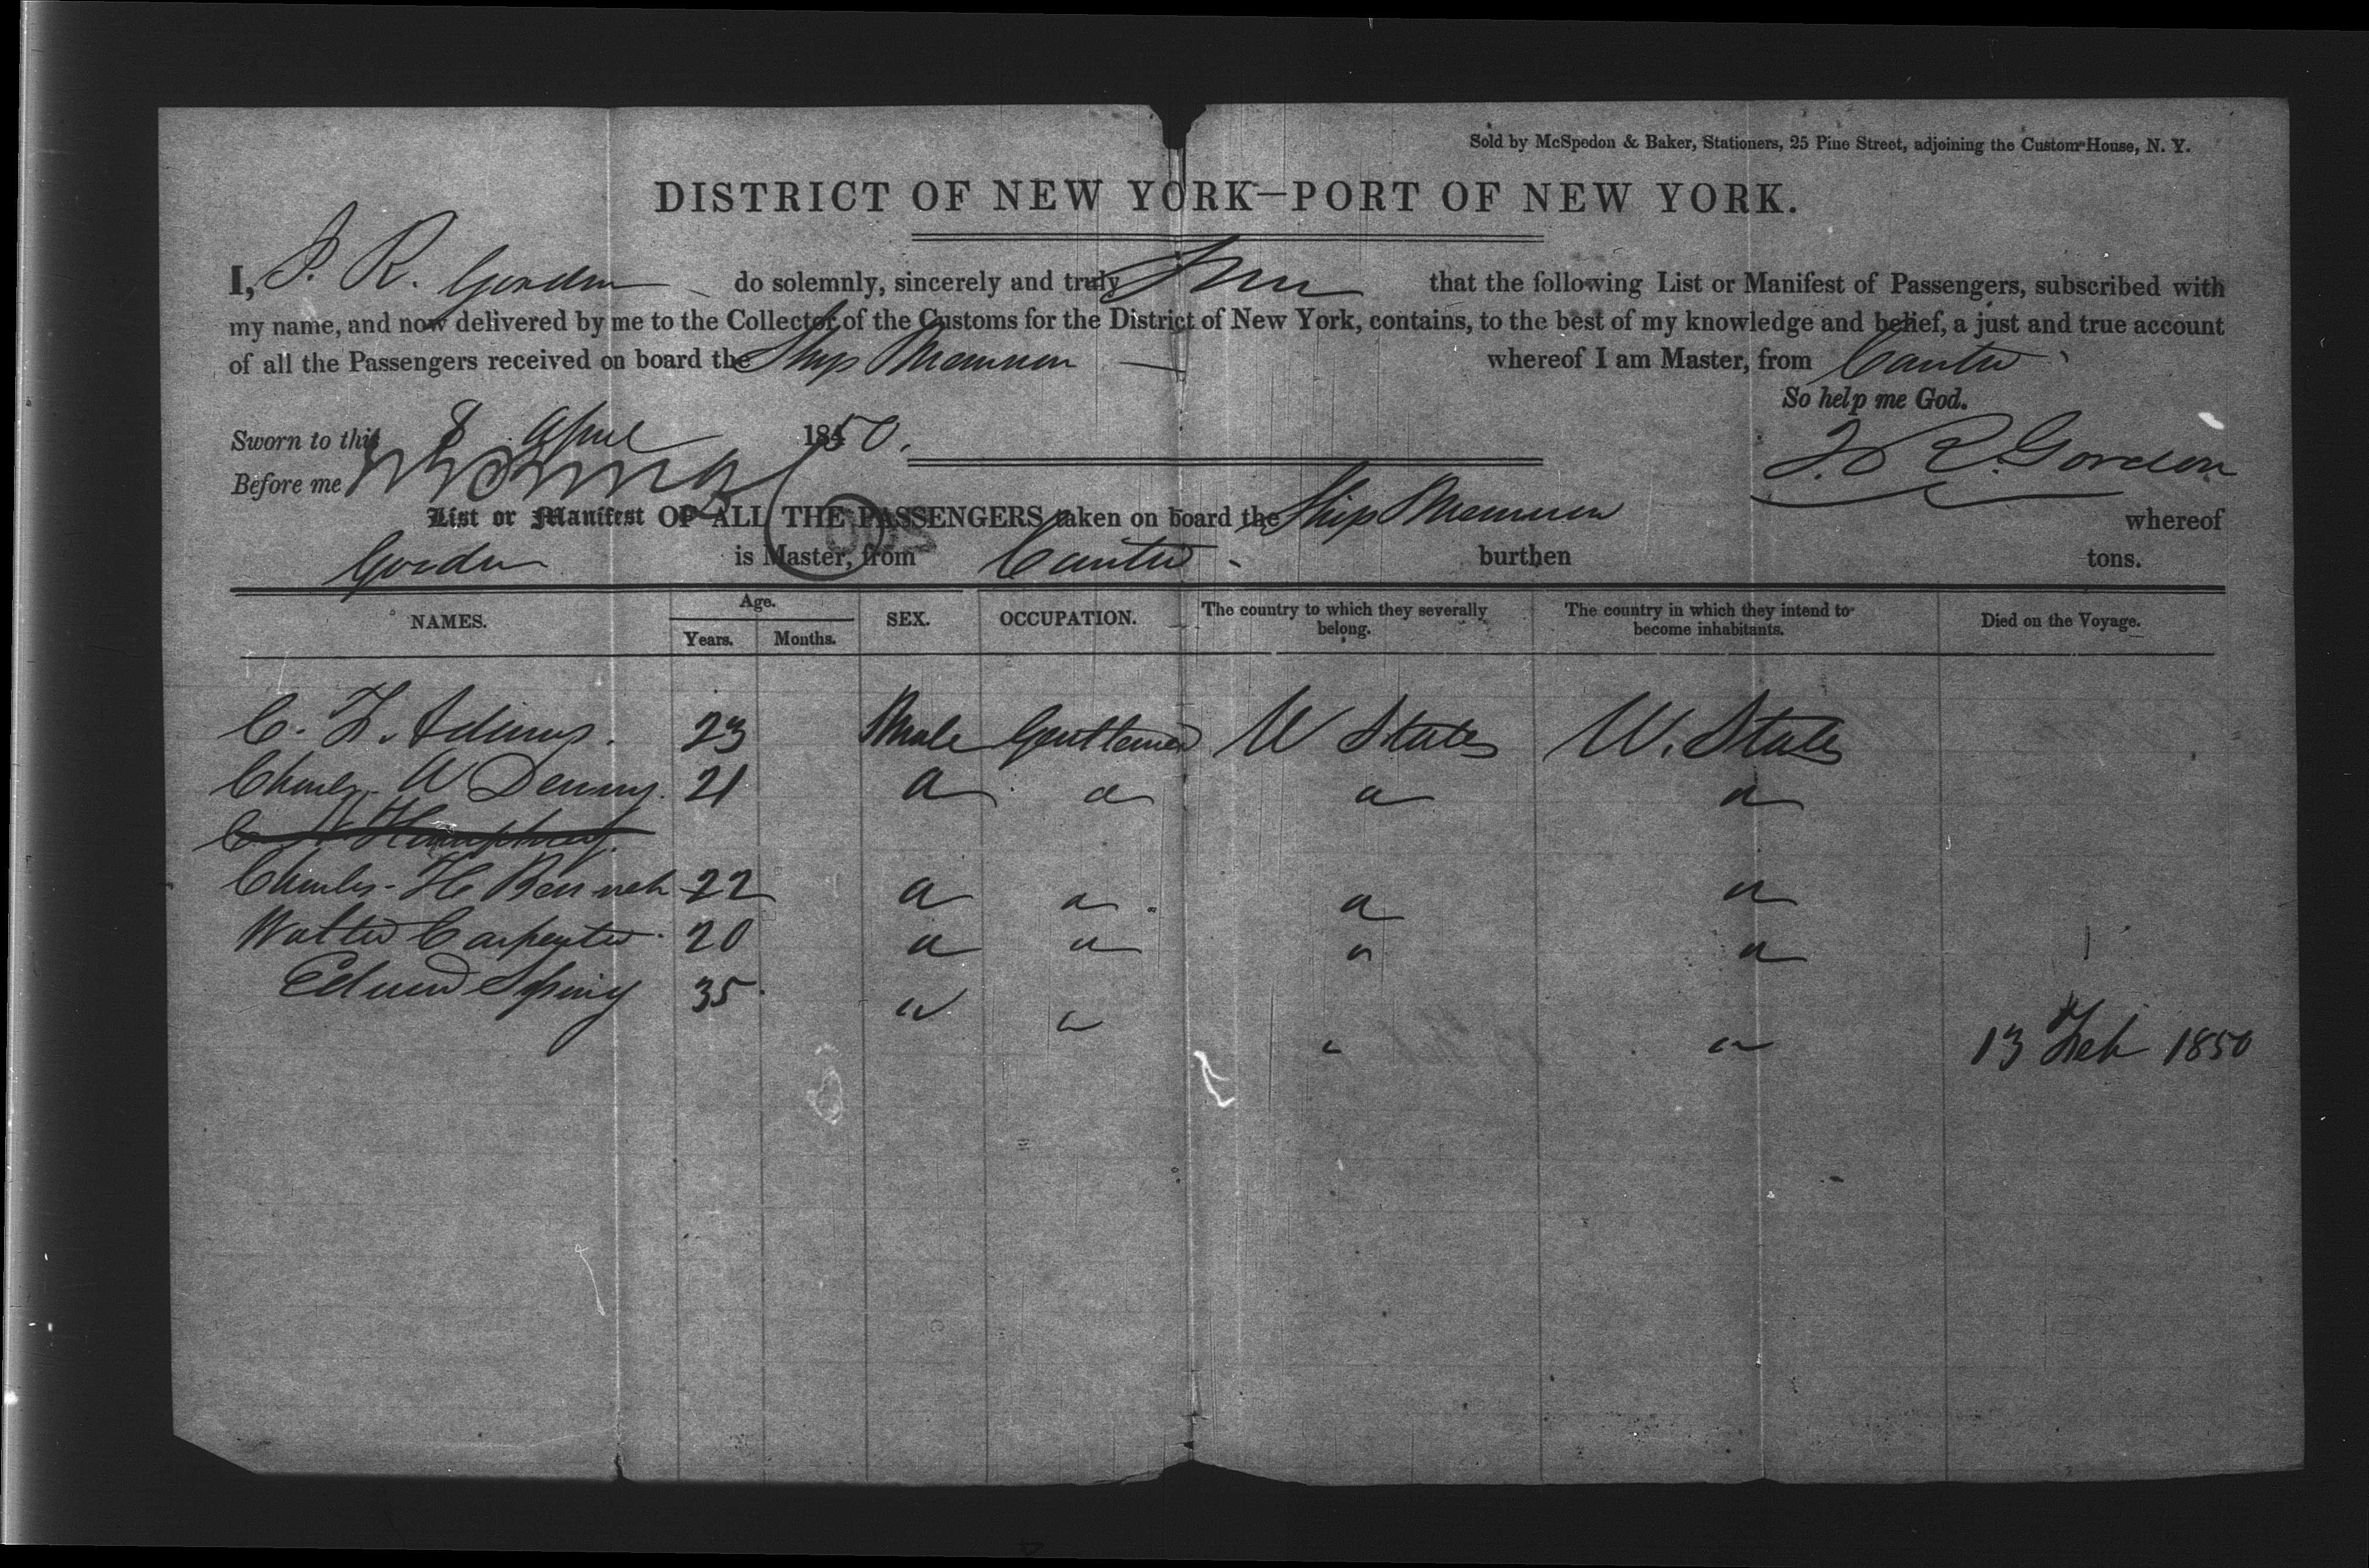 Sold by McSpedon & Baker, Stationers, 25 Pine Street, adjoining the Custom-House, N. Y.
DISTRICT OF NEW YORK—PORT OF NEW YORK.
I, J. R. Gordon do solemnly, sincerely and truly that the following List or Manifest of Passengers, subscribed with
my name, and now delivered by me to the Collector of the Customs for the District of New York, contains, to the best of my knowledge and belief, a just and true account
of all the Passengers received on board the Ship Memnon whereof I am Master, from Canton
So help me God.
Sworn to this 8 April 1850.
J. R. Gordon
Before me
List or Manifest OF ALL THE PASSENGERS taken on board the Ship Memnon whereof
Gordon is Master, from Canton burthen tons.
NAMES. Age. Years. Months. SEX. OCCUPATION. The country to which they severally belong. The country in which they intend to become inhabitants. Died on the Voyage.
C. F. Adams. 23 Male Gentleman U States U. States
Charles W Denny. 21 " " " "
C Humphrey.
Charles H 22 " " " "
Walter Carpenter 20 " " " "
Edward Spring 35 " " " " 13 Feb 1850